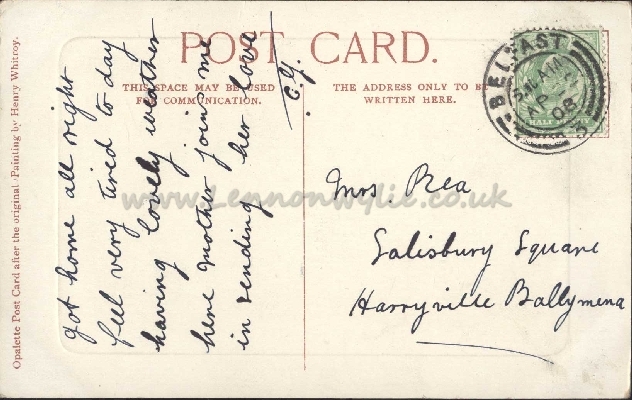 POST CARD.
THIS SPACE MAY BE USED
FOR COMMUNICATION.
THE ADDRESS ONLY TO BE
WRITTEN HERE.
got home all right
feel very tired to day
having lovely weather
here Mother joins me
in sending her love
C.G.
Mrs. Rea
Salisbury Square
Harryville Ballymena
BELFAST
AP
08
3
HALF
www.Lennonwylie.co.uk
Opalette Post Card after the original Painting by Henry Whitroy.